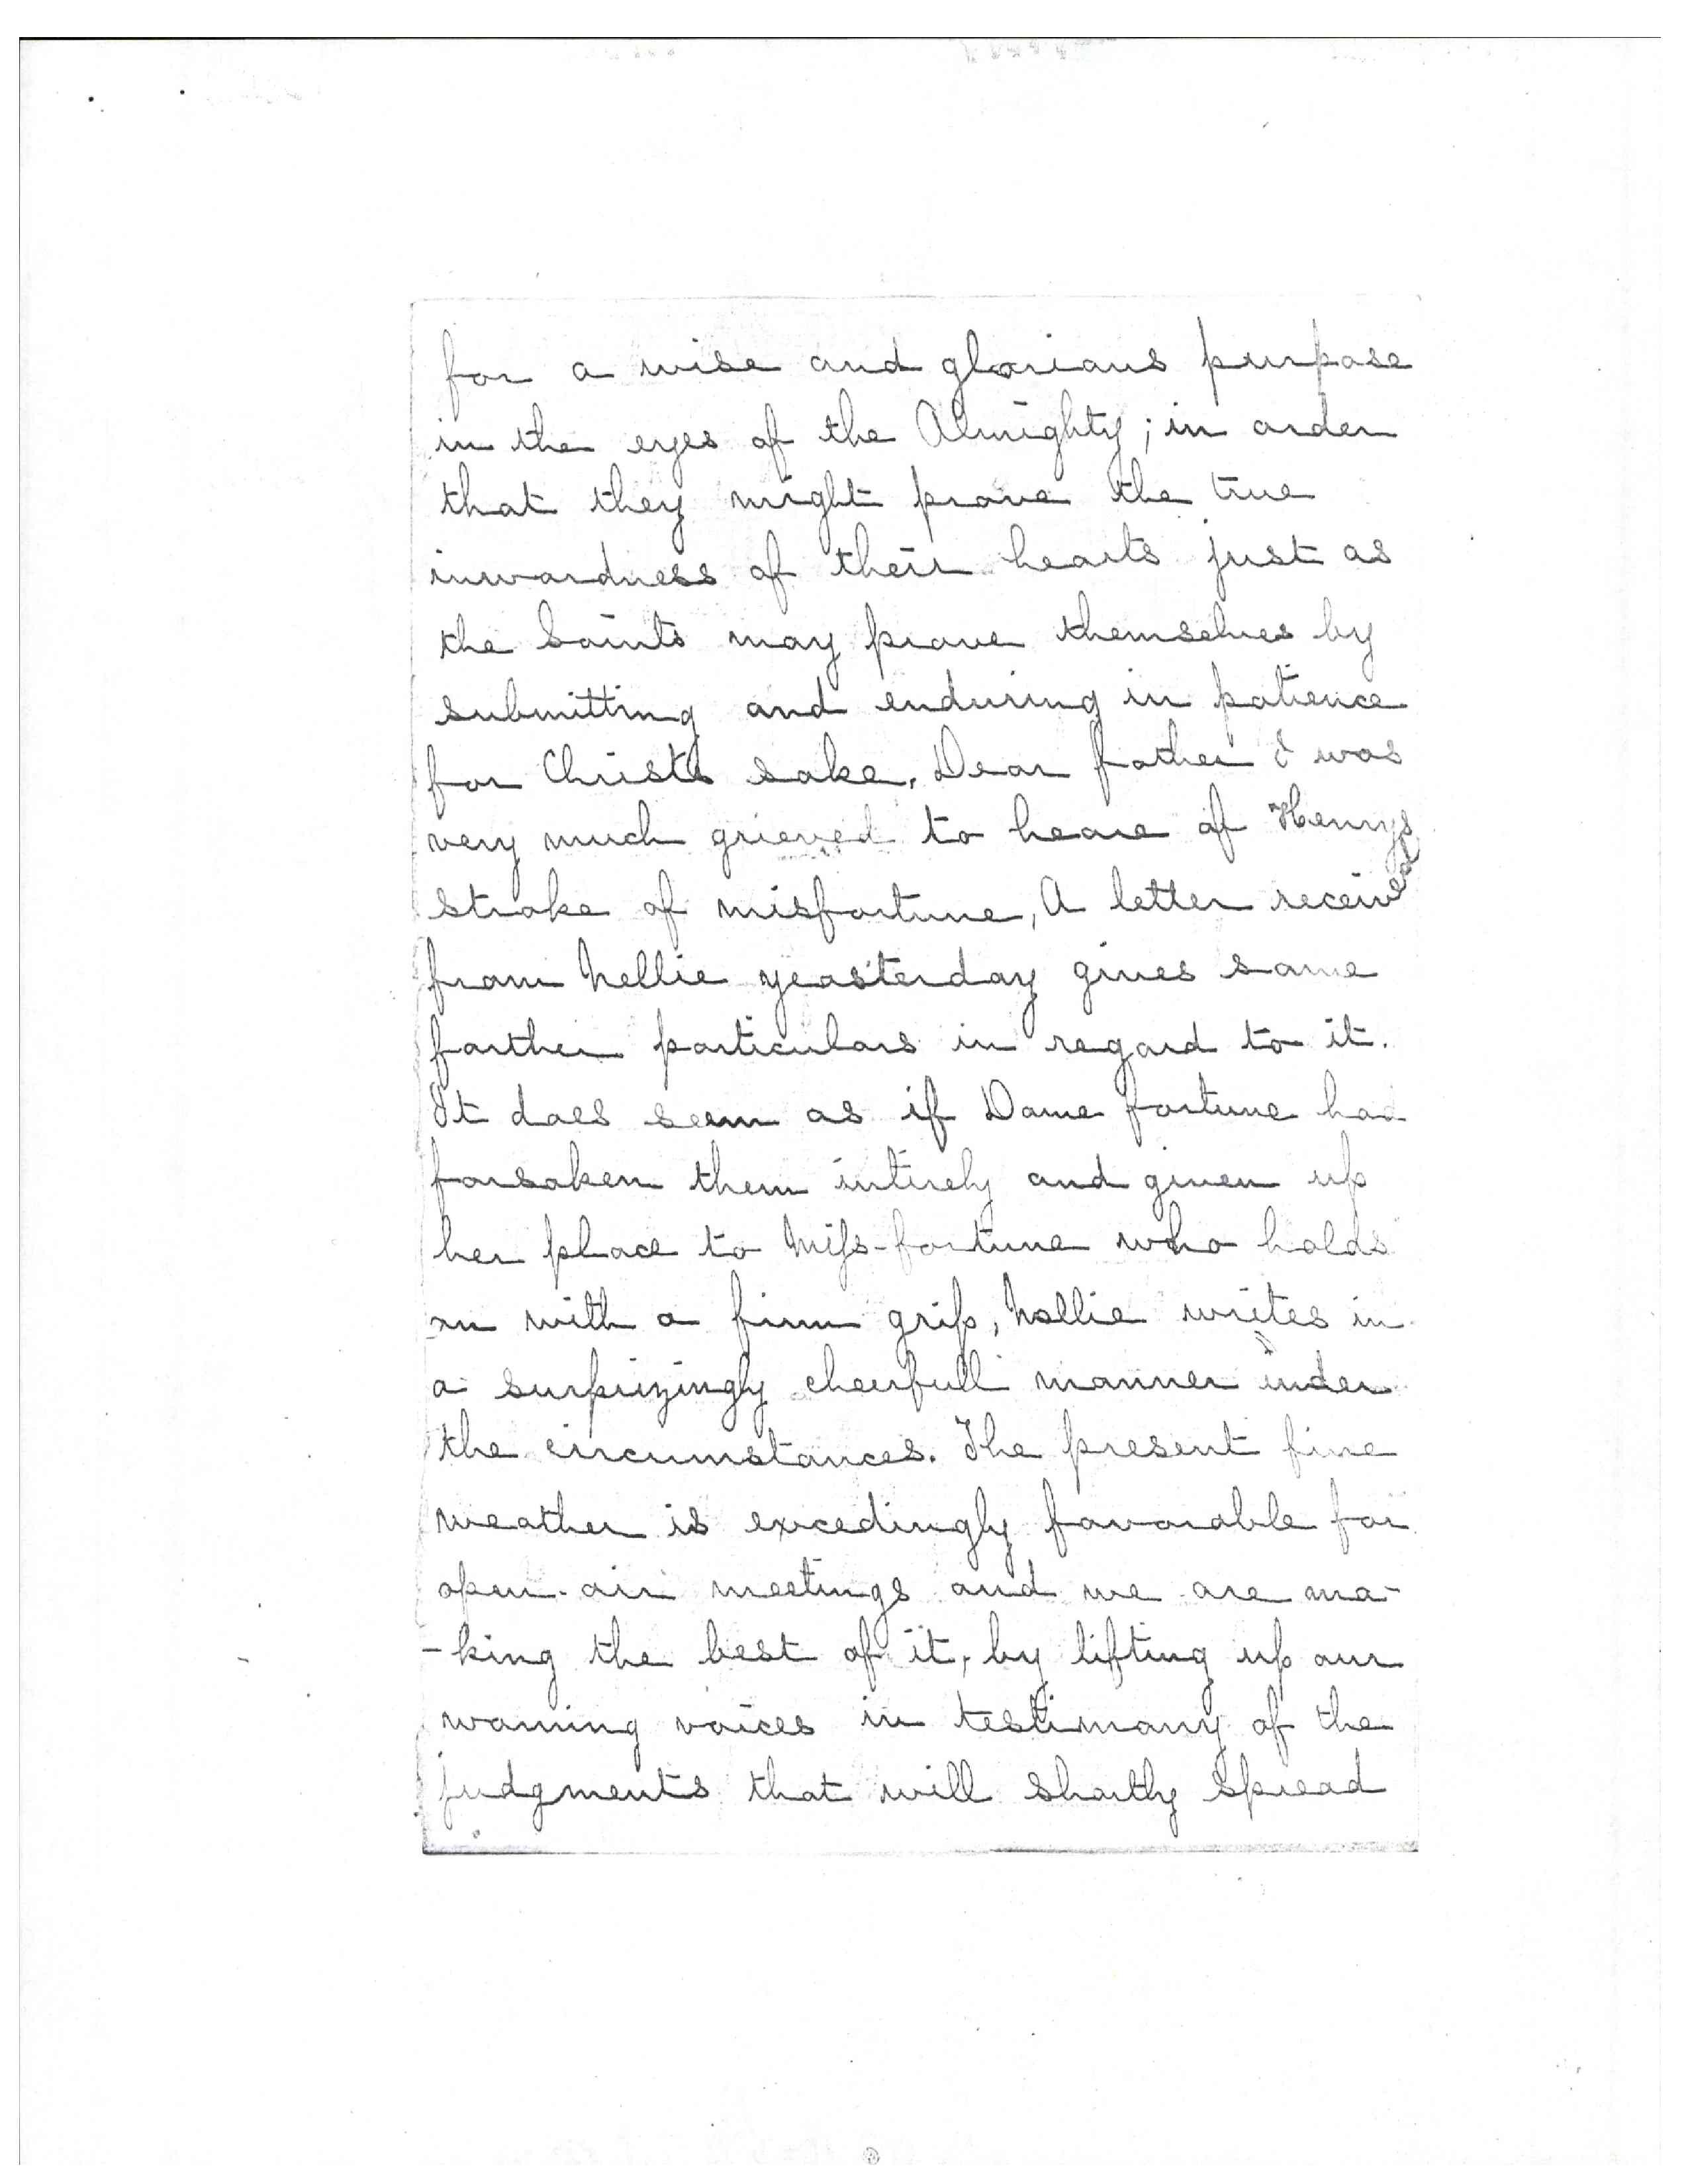 for a wise and glorious purpose
in the eyes of the Almighty; in order
that they might prove the true
inwardness of their hearts just as
the Saints may prove themselves by
submitting and enduring in patience
for Christs sake. Dear father I was
very much grieved to heare of Henrys
stroke of misfortune, A letter received
from Nellie yeasterday gives some
farther particulars in regard to it.
It does seem as if Dame fortune had
forsaken them intirely and given up
her place to Miss-fortune who holds
on with a firm grip, Nellie writes in
a surprizingly cheerfull manner under
the circumstances. The present fine
weather is excedingly favorable for
open-air meetings and we are ma-
-king the best of it, by lifting up our
warning voices in testimony of the
judgments that will shortly spread